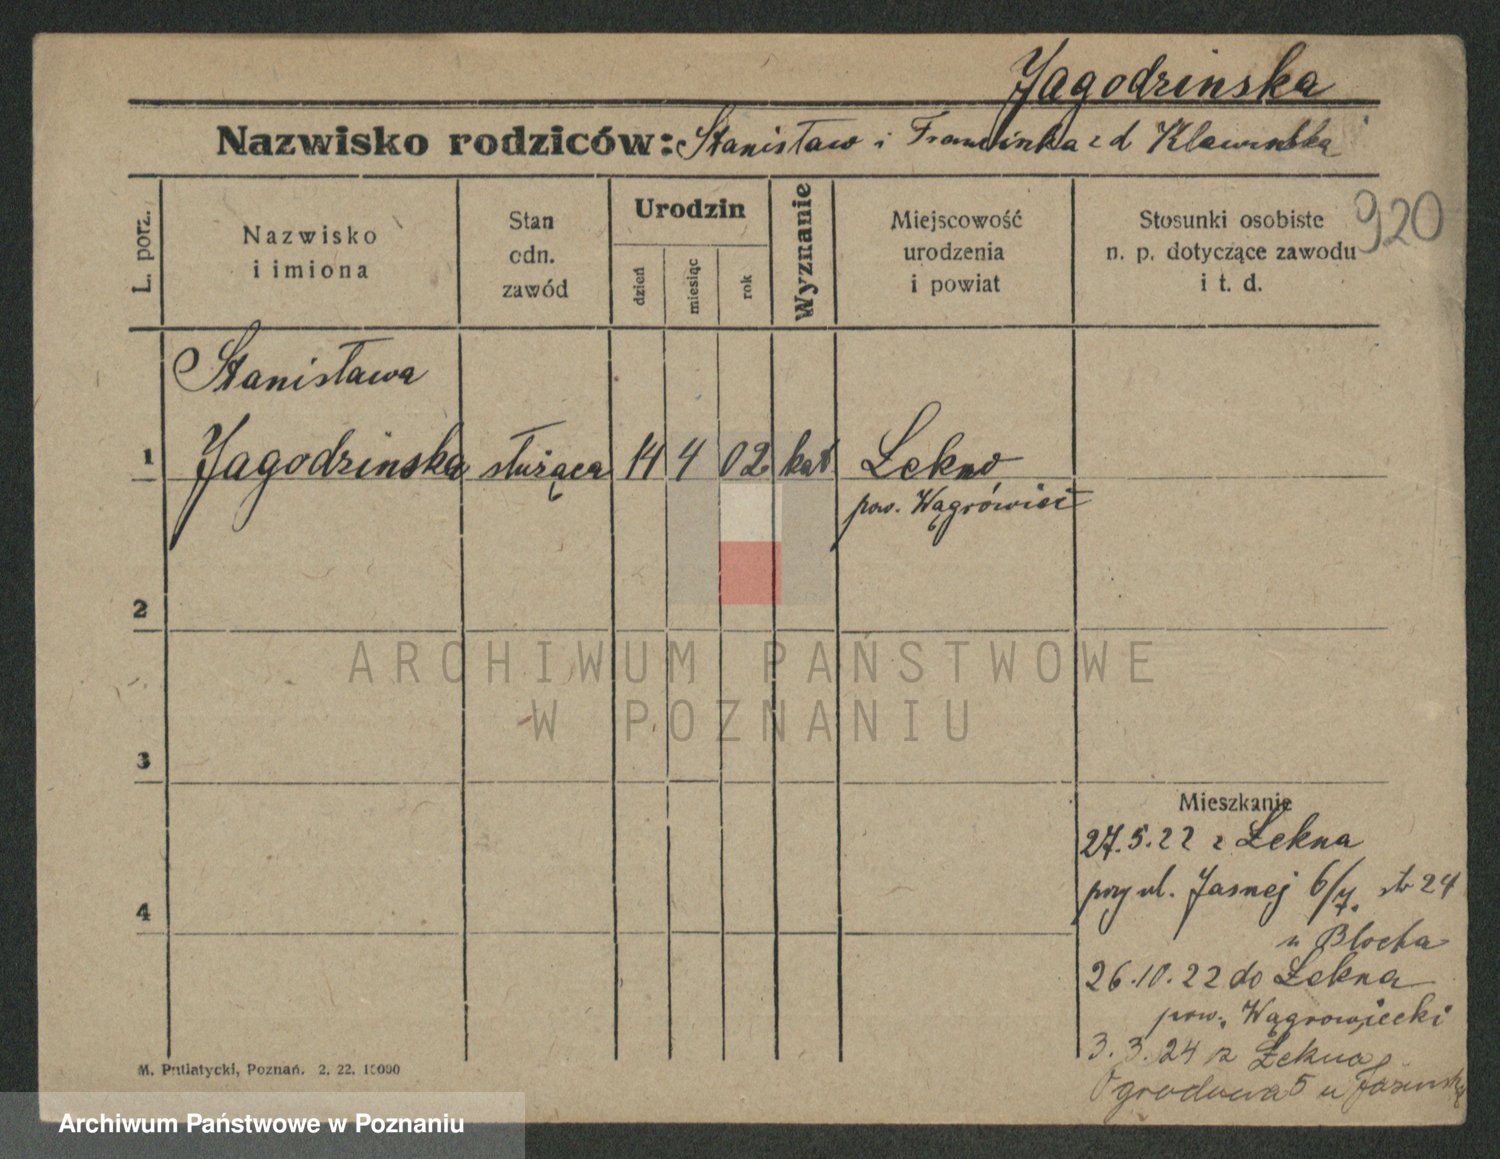 Jagodzinska
Nazwisko rodziców: Stanisław i z d
920
L. porz.
Nazwisko
i imiona
Stan
odn.
zawód
Urodzin
dzień
miesiąc
rok
Wyznanie
Miejscowość
urodzenia
i powiat
Stosunki osobiste
n. p. dotyczące zawodu
i t. d.
Stanisława
1 Jagodzinska służąca 14 4 02 kat Łekno
pow. Wągrówiec
2
ARCHIWUM PAŃSTWOWE
W POZNANIU
3
4
Mieszkanie
27.5.22 z Łekna
przy ul. Jasnej 6/7. str 24
u Blocha
26.10.22 do Łekna
pow. Wągrowiecki
3.3.24 z Łekna
Ogrodowa 5 u
M. Putiatycki, Poznań. 2. 22. 10000
Archiwum Państwowe w Poznaniu